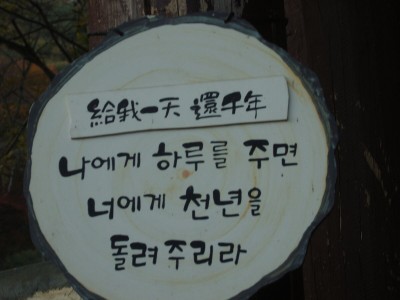 給我一天 還千年
나에게 하루를 주면
너에게 천년을
돌려주리라